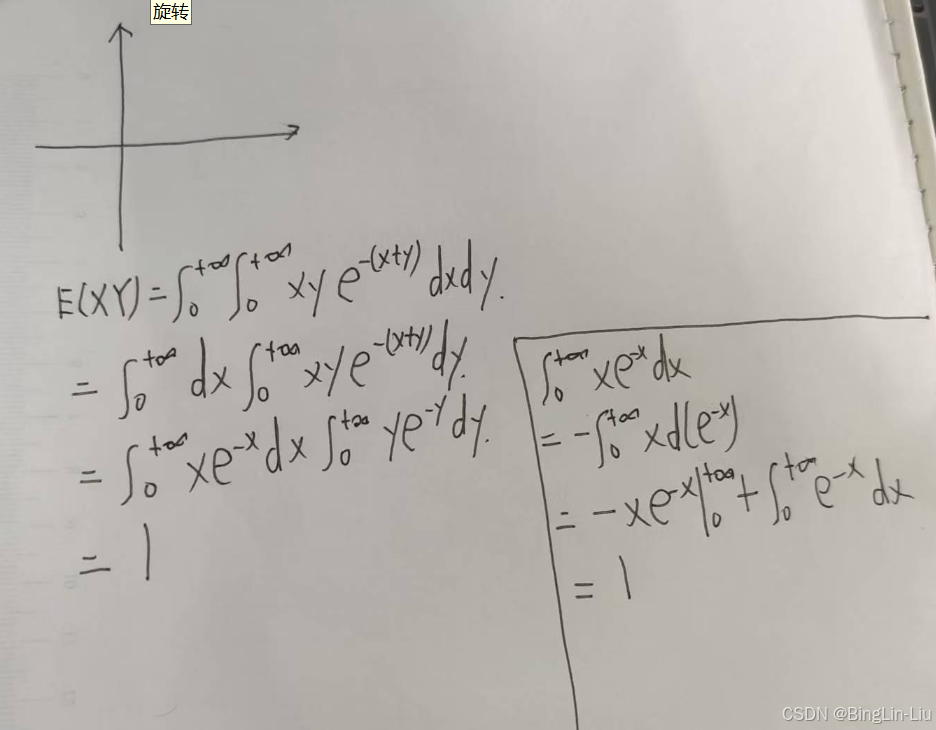 旋转
E(XY)=∫₀^{+∞}∫₀^{+∞} xy e^{-(x+y)} dxdy.
= ∫₀^{+∞} dx ∫₀^{+∞} xy e^{-(x+y)} dy.
= ∫₀^{+∞} xe^{-x} dx ∫₀^{+∞} ye^{-y} dy.
= 1
∫₀^{+∞} xe^{-x} dx
= -∫₀^{+∞} xd(e^{-x})
= -xe^{-x}|₀^{+∞} + ∫₀^{+∞} e^{-x} dx
= 1
CSDN @BingLin-Liu